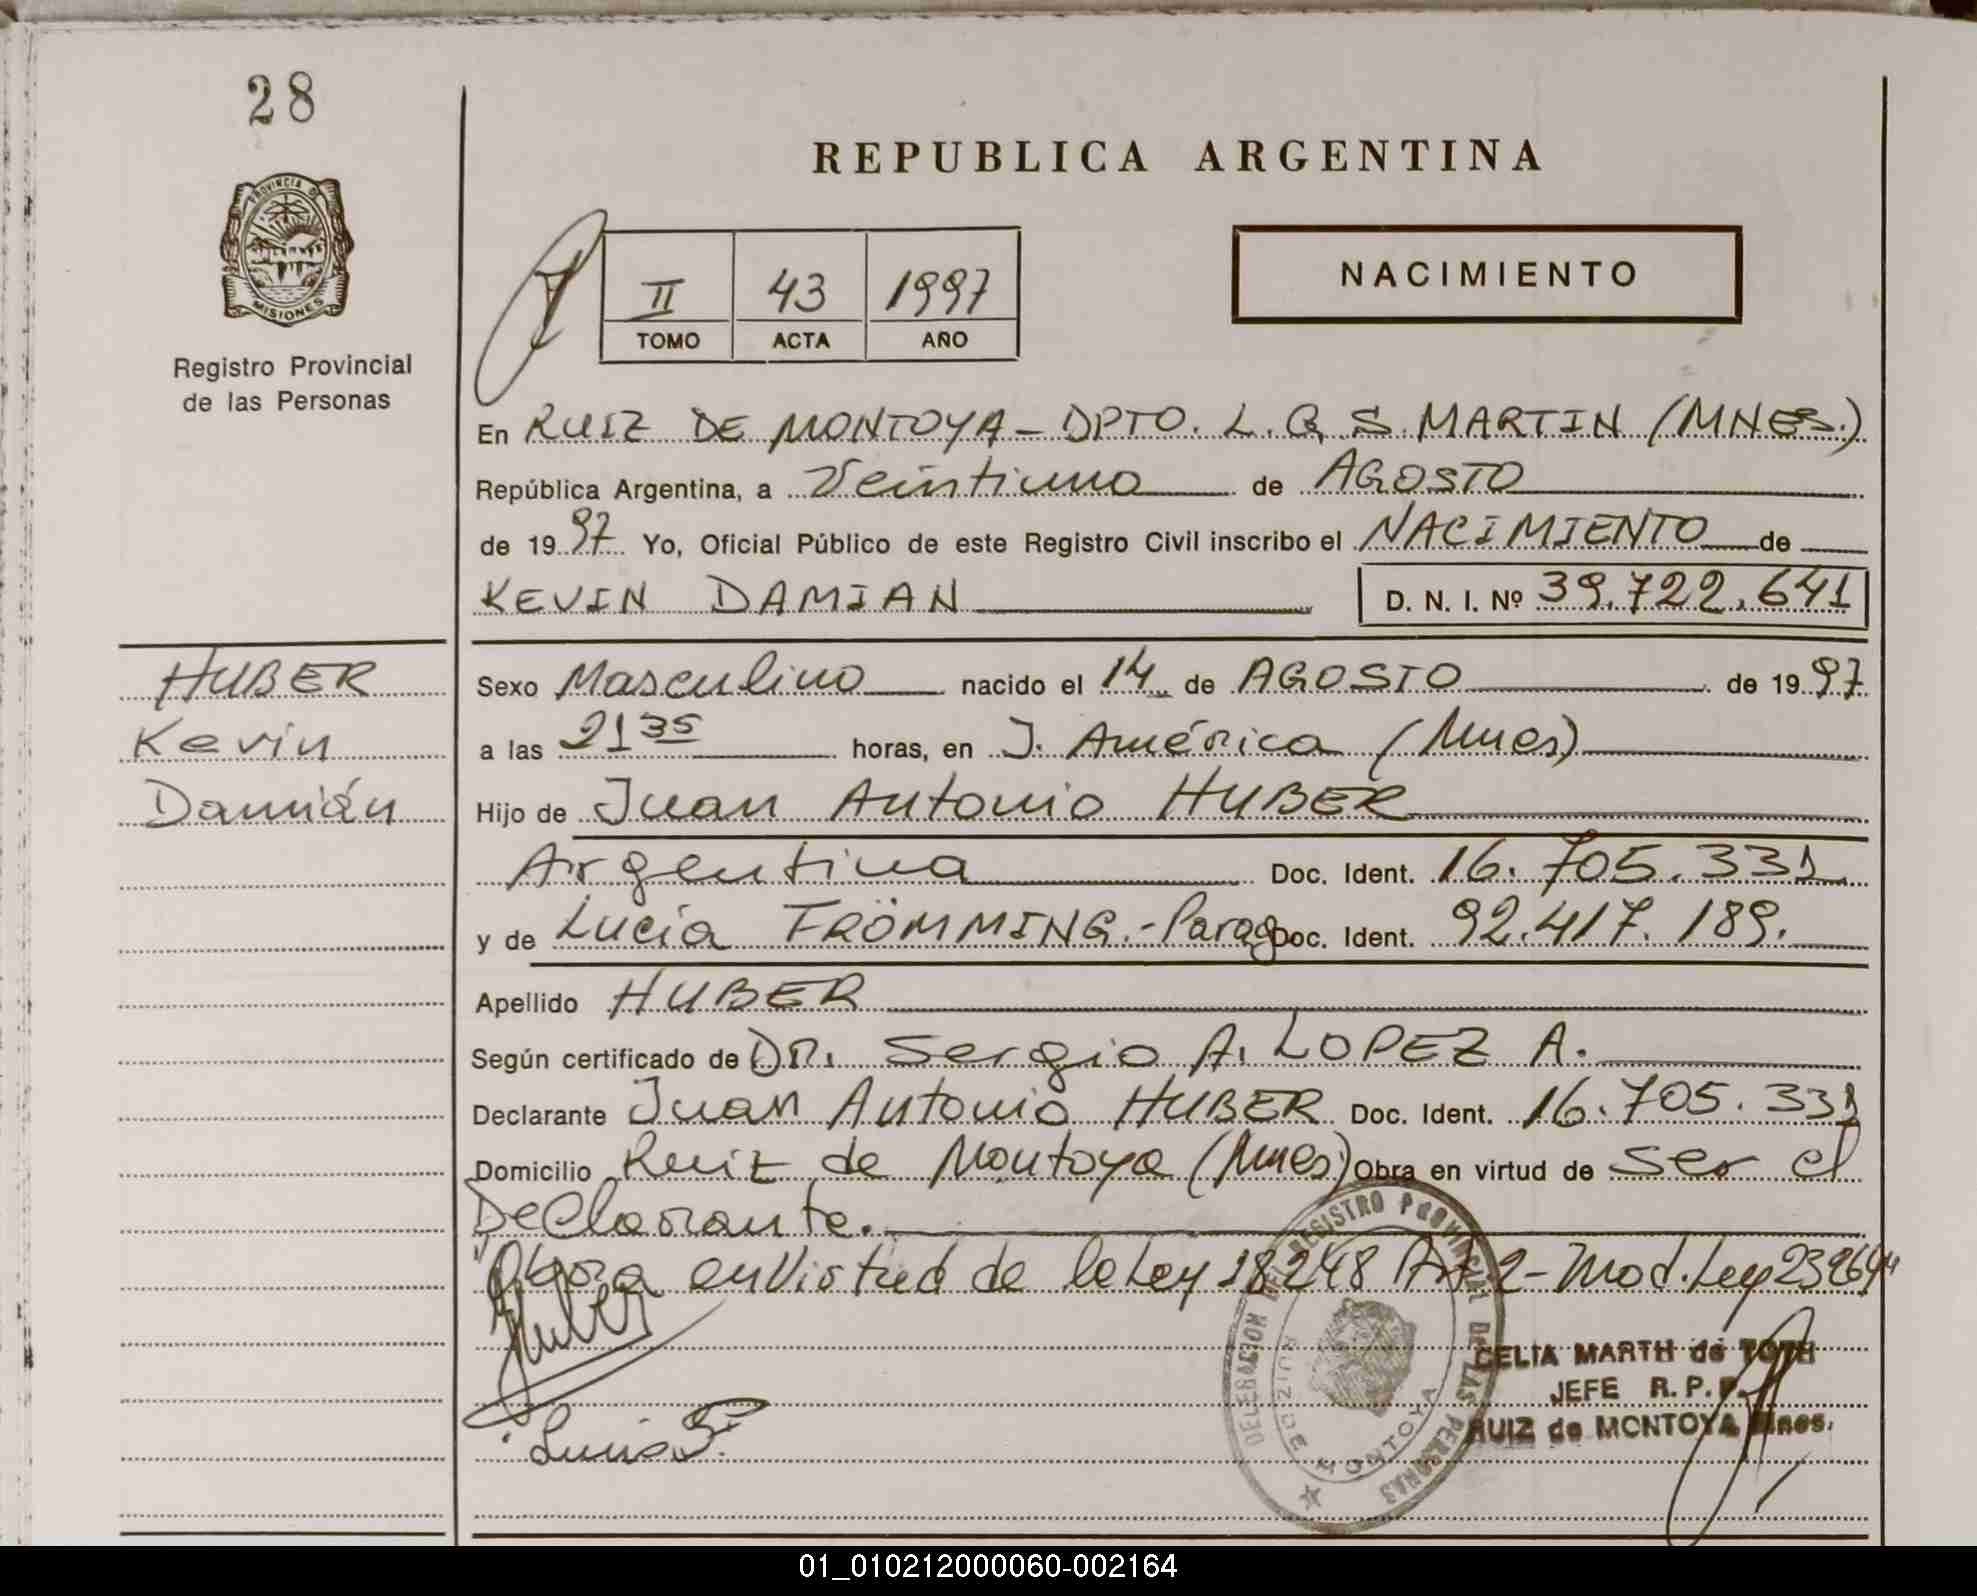 28
PROVINCIA DE
MISIONES
Registro Provincial
de las Personas
REPUBLICA ARGENTINA
II 43 1997
TOMO ACTA AÑO
NACIMIENTO
En RUIZ DE MONTOYA - DPTO. L. G. S. MARTIN (MNES.)
República Argentina, a Veintiuno de AGOSTO
de 1997 Yo, Oficial Público de este Registro Civil inscribo el NACIMIENTO de
KEVIN DAMIAN D. N. I. Nº 39.722.641
HUBER
Kevin
Damián
Sexo Masculino nacido el 14 de AGOSTO de 1997
a las 21 35 horas, en J. América (Mnes)
Hijo de Juan Antonio HUBER
Argentina Doc. Ident. 16.705.331
y de Lucía FRÖMMING.- Parag Doc. Ident. 92.417.189.
Apellido HUBER
Según certificado de DR. Sergio A. LOPEZ A.
Declarante Juan Antonio HUBER Doc. Ident. 16.705.331
Domicilio Ruiz de Montoya (Mnes) Obra en virtud de ser el
Declarante.
"Obra en Virtud de la Ley 18248 Art 2 - Mod. Ley 23264"
Huber
DELEGACION DEL REGISTRO PROVINCIAL DE LAS PERSONAS
RUIZ DE MONTOYA
CELIA MARTH de TOTH
JEFE R. P. P.
RUIZ de MONTOYA Mnes.
01_010212000060-002164